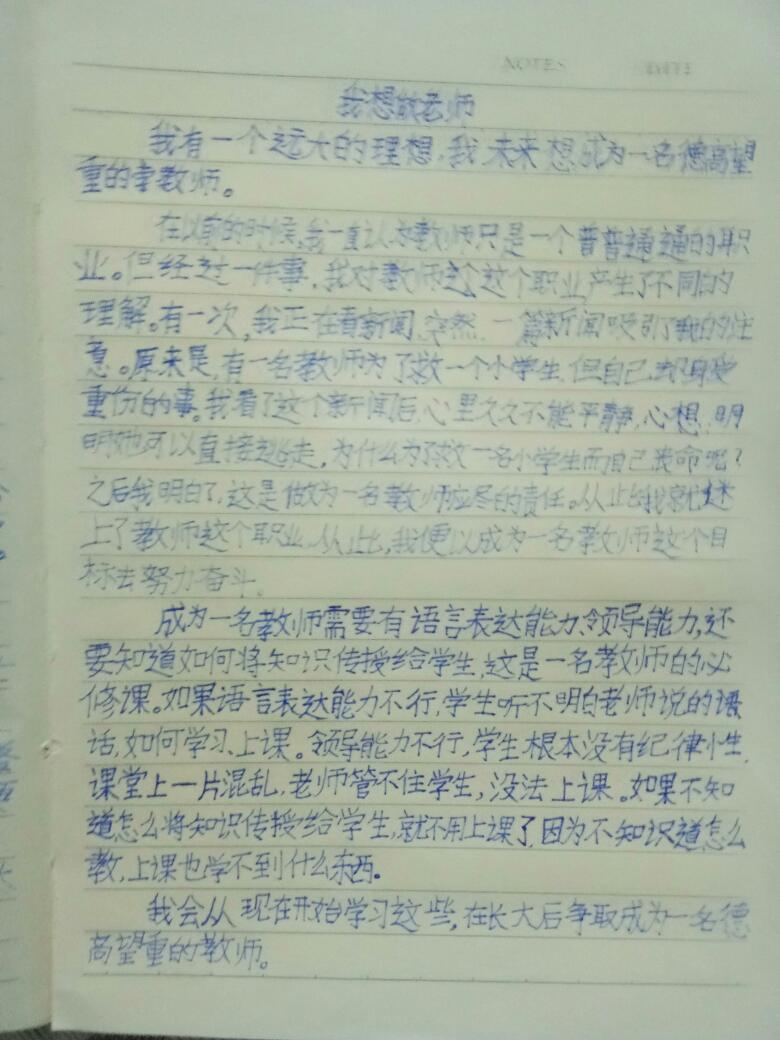 NOTES
我想做老师
我有一个远大的理想,我未来想成为一名德高望
重的教师。
在以前的时候,我一直认为教师只是一个普普通通的职
业。但经过一件事,我对教师这个职业产生了不同的
理解。有一次,我正在看新闻,突然,一篇新闻吸引了我的注
意。原来是,有一名教师为了救一个小学生,但自己却身受
重伤的事。我看了这个新闻后,心里久久不能平静,心想,明
明她可以直接逃走,为什么为了救一名小学生而自己丧命呢?
之后我明白了,这是做为一名教师应尽的责任。从此我就迷
上了教师这个职业,从此,我便以成为一名教师这个目
标去努力奋斗.
成为一名教师需要有语言表达能力、领导能力,还
要知道如何将知识传授给学生,这是一名教师的必
修课。如果语言表达能力不行,学生听不明白老师说的
话,如何学习、上课。领导能力不行,学生根本没有纪律性,
课堂上一片混乱,老师管不住学生,没法上课。如果不知
道怎么将知识传授给学生,就不用上课了,因为不知识道怎么
教,上课也学不到什么东西。
我会从现在开始学习这些,在长大后争取成为一名德
高望重的教师。